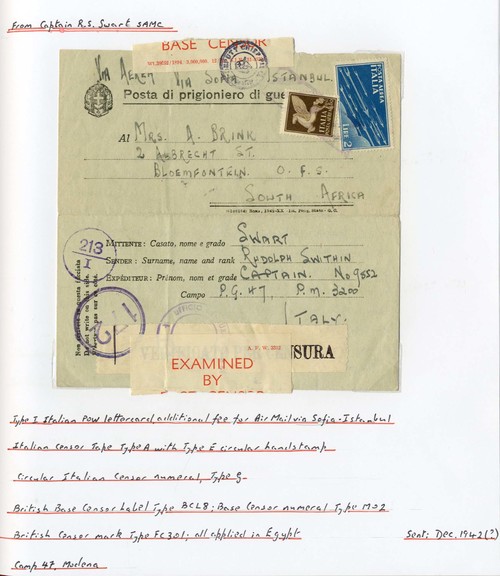 From Captain R.S. Swart SAMC
BASE CENSOR
Via Aerea Via Sofia Istanbul
Posta di prigioniero di gue
POSTA AEREA
ITALIA
LIRE 2
Al Mrs. A. Brink
2 Albrecht St.
Bloemfontein. O.F.S.
South Africa
213
I
MITTENTE: Casato, nome e grado Swart
SENDER: Surname, name and rank Rudolph Swithin
EXPÉDITEUR: Prénom, nom et grade Captain. No 9552
Campo P.G. 47 P.M. 3200
Italy.
172
NSURA
A.F.W. 3052
EXAMINED
BY
Type I Italian POW lettercard, additional fee for Air Mail via Sofia-Istanbul
Italian Censor Tape Type A with Type E circular handstamp
Circular Italian Censor numeral, Type G
British Base Censor Label Type BCL8; Base Censor numeral Type MO2
British Censor mark Type FC301; all applied in Egypt Sent: Dec, 1942(?)
Camp 47, Modena